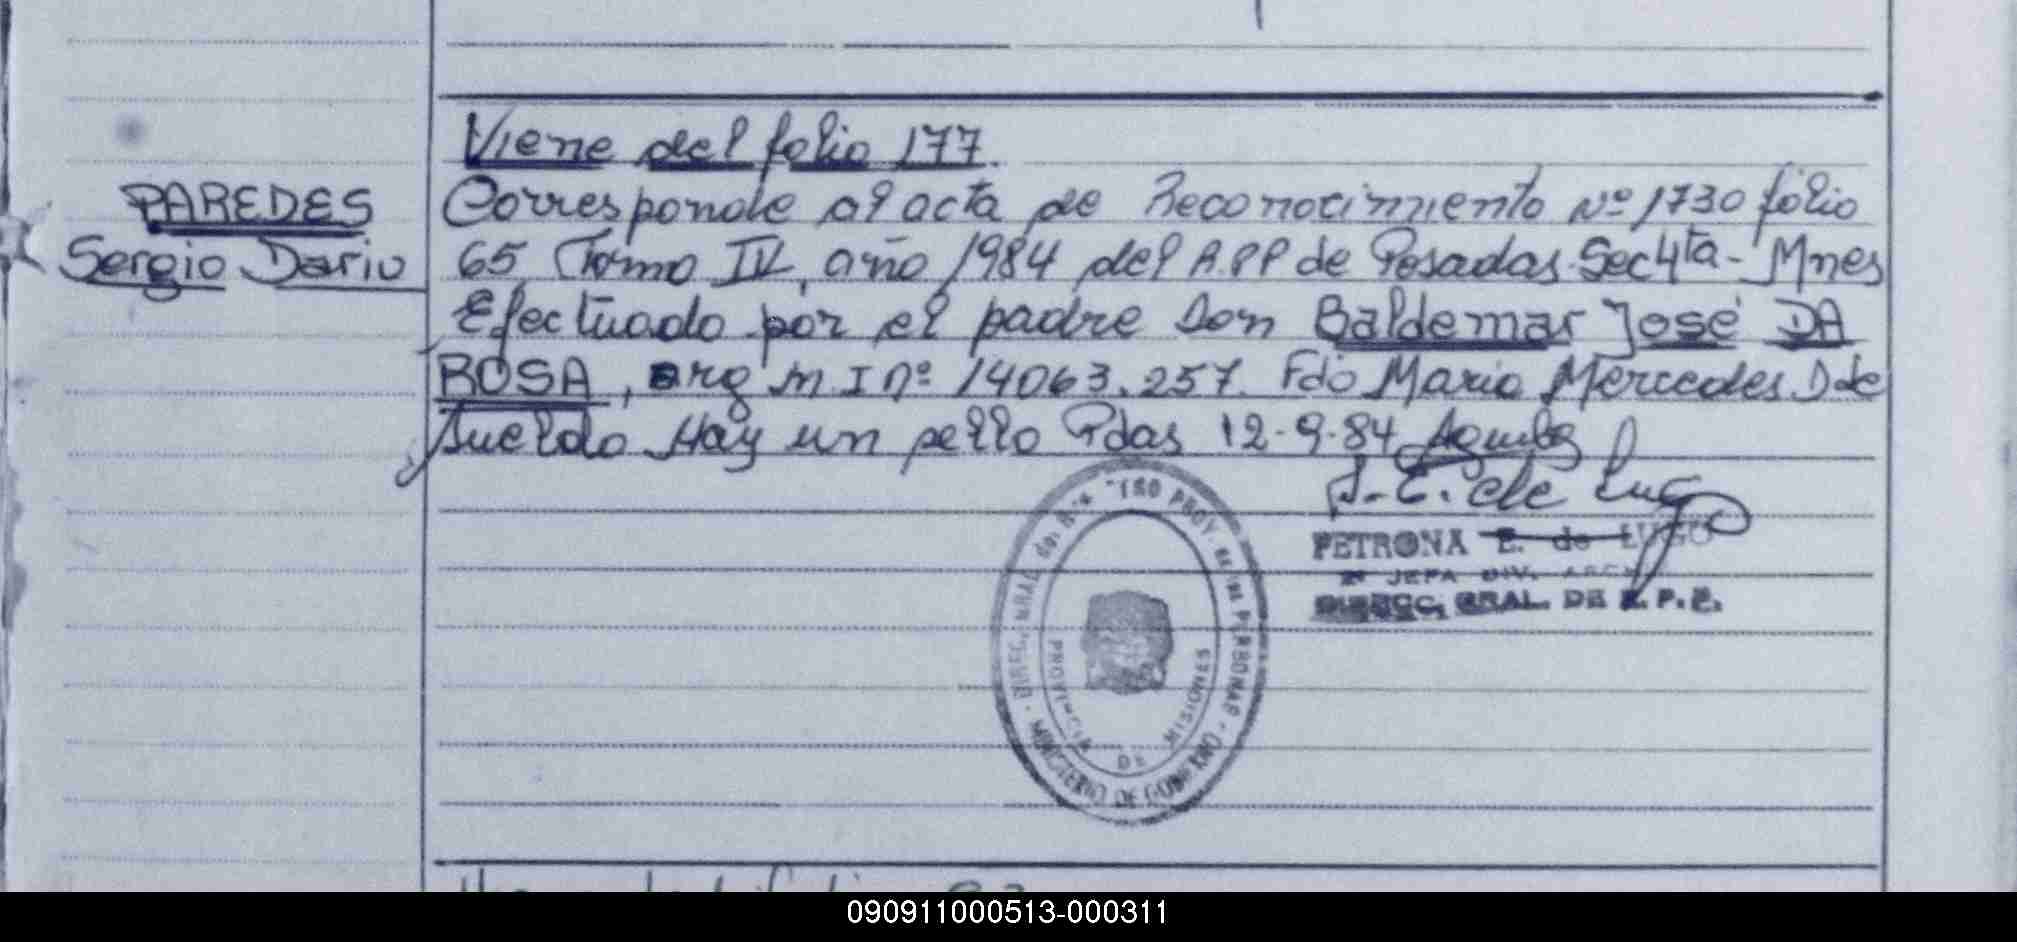 Viene del folio 177.
PAREDES
Sergio Dario
Corresponde al acta de Reconocimiento Nº 1730 folio
65 Tomo IV, año 1984 del A.PP de Posadas Sec 4ta - Mnes
Efectuado por el padre Don Baldemar José DA
ROSA, arg m I nº 14063.257. Fdo Maria Mercedes D de
Sueldo Hay un sello Pdas 12-9-84
E. de Lugo
PETRONA E. de LUGO
JEFA DIV. ARCH
DIRECC. GRAL. DE R. P. P.
PROV. de las PERSONAS - MINISTERIO DE GOBIERNO
PROVINCIA DE MISIONES
090911000513-000311